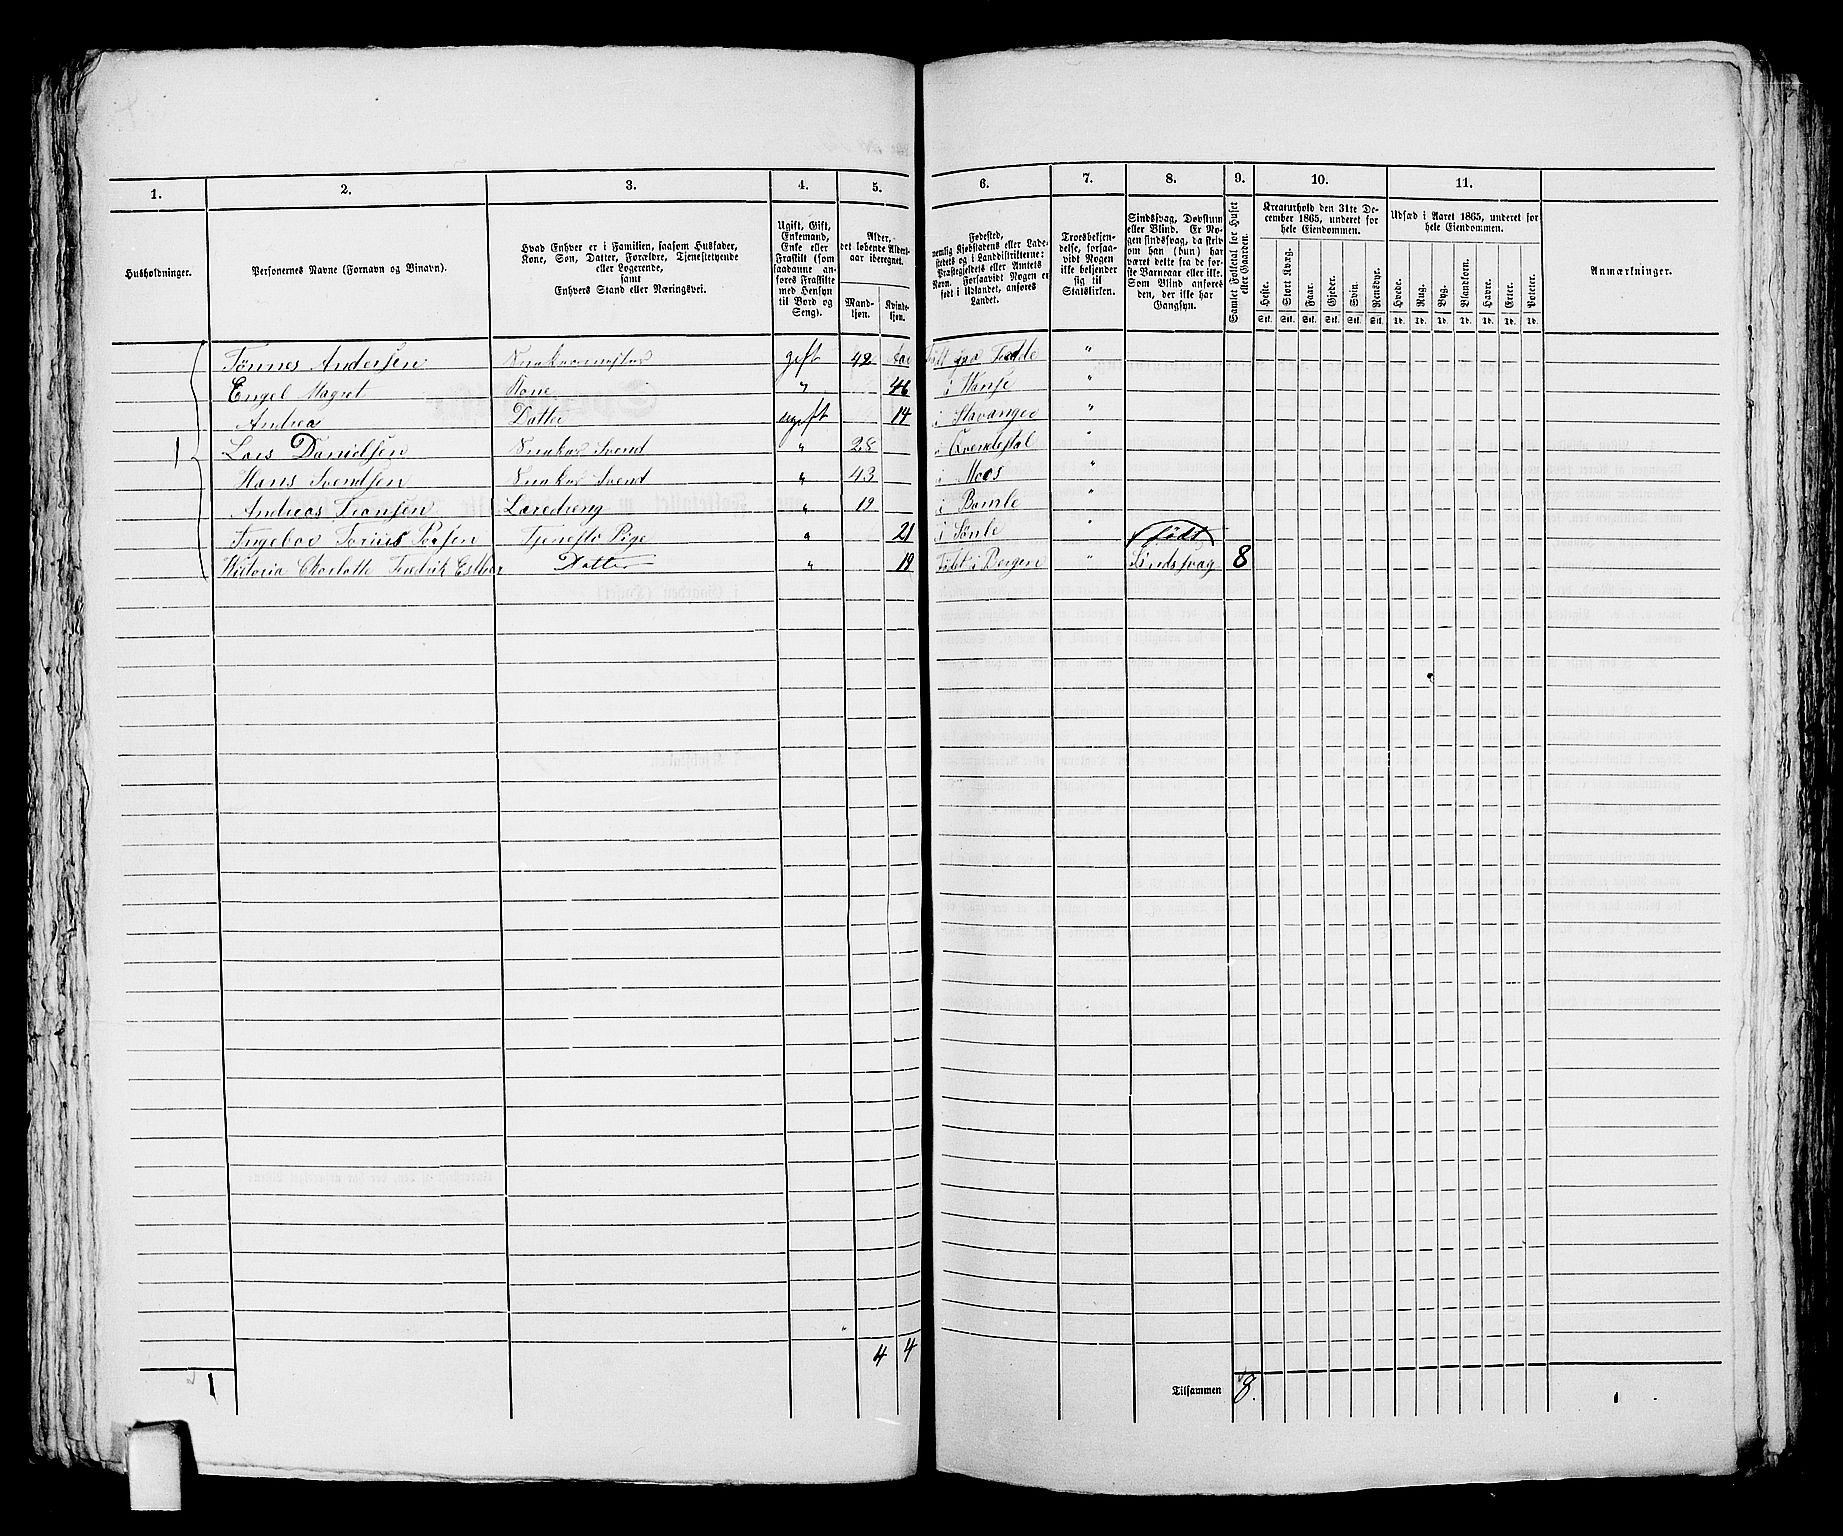 1. 2. 3. 4. 5. 6. 7. 8. 9. 10. 11.
Husholdninger.
Personernes Navne (Fornavn og Binavn).
Hvad Enhver er i Familien, saasom Husfader,
Kone, Søn, Datter, Forældre, Tjenestetyende
eller Logerende,
samt
Enhvers Stand eller Næringsvei.
Ugift, Gift,
Enkemand,
Enke eller
Fraskilt (som
saadanne an-
føres Fraskilte
med Hensyn
til Bord og
Seng).
Alder,
det løbende Alders-
aar iberegnet.
Mand-
kjøn.
Kvinde-
kjøn.
Fødested,
nemlig Kjøbstadens eller Lade-
stedets og i Landdistrikterne:
Præstegjeldets eller Amtets
Navn. Forsaavidt Nogen er
født i Udlandet, anføres
Landet.
Troesbekjen-
delse, forsaa-
vidt Nogen
ikke bekjender
sig til
Statskirken.
Sindssvag, Døvstum
eller Blind. Er No-
gen sindssvag, da skriv
om han (hun) har
været dette fra de før-
ste Barneaar eller ikke.
Som Blind anføres
den, der ikke har
Gangsyn.
Samlet Folketal for Huset
eller Gaarden.
Kreaturhold den 31te De-
cember 1865, underet for
hele Eiendommen.
Heste. Stort Kvæg. Faar. Gjeder. Svin. Rensdyr.
Stk. Stk. Stk. Stk. Stk. Stk.
Udsæd i Aaret 1865, underet for
hele Eiendommen.
Hvede. Rug. Byg. Blandkorn. Havre. Erter. Poteter.
Td. Td. Td. Td. Td. Td. Td.
Anmærkninger.
Tønnes Andersen gift 42 Aar Født "
Engel Magret Kone " 46 i "
Andrea Datter ugift 14 i Stavanger "
1 Lars Danielsen Snekker Svend " 28 i "
Hans Svendsen Snekker Svend " 43 i Moss "
Andreas Læredreng " 19 i Bamle "
Tjeneste Pige " 21 i "
født
Datter " 19 Født i Bergen " Sindssvag 8
4 4
1 Tilsammen 8.